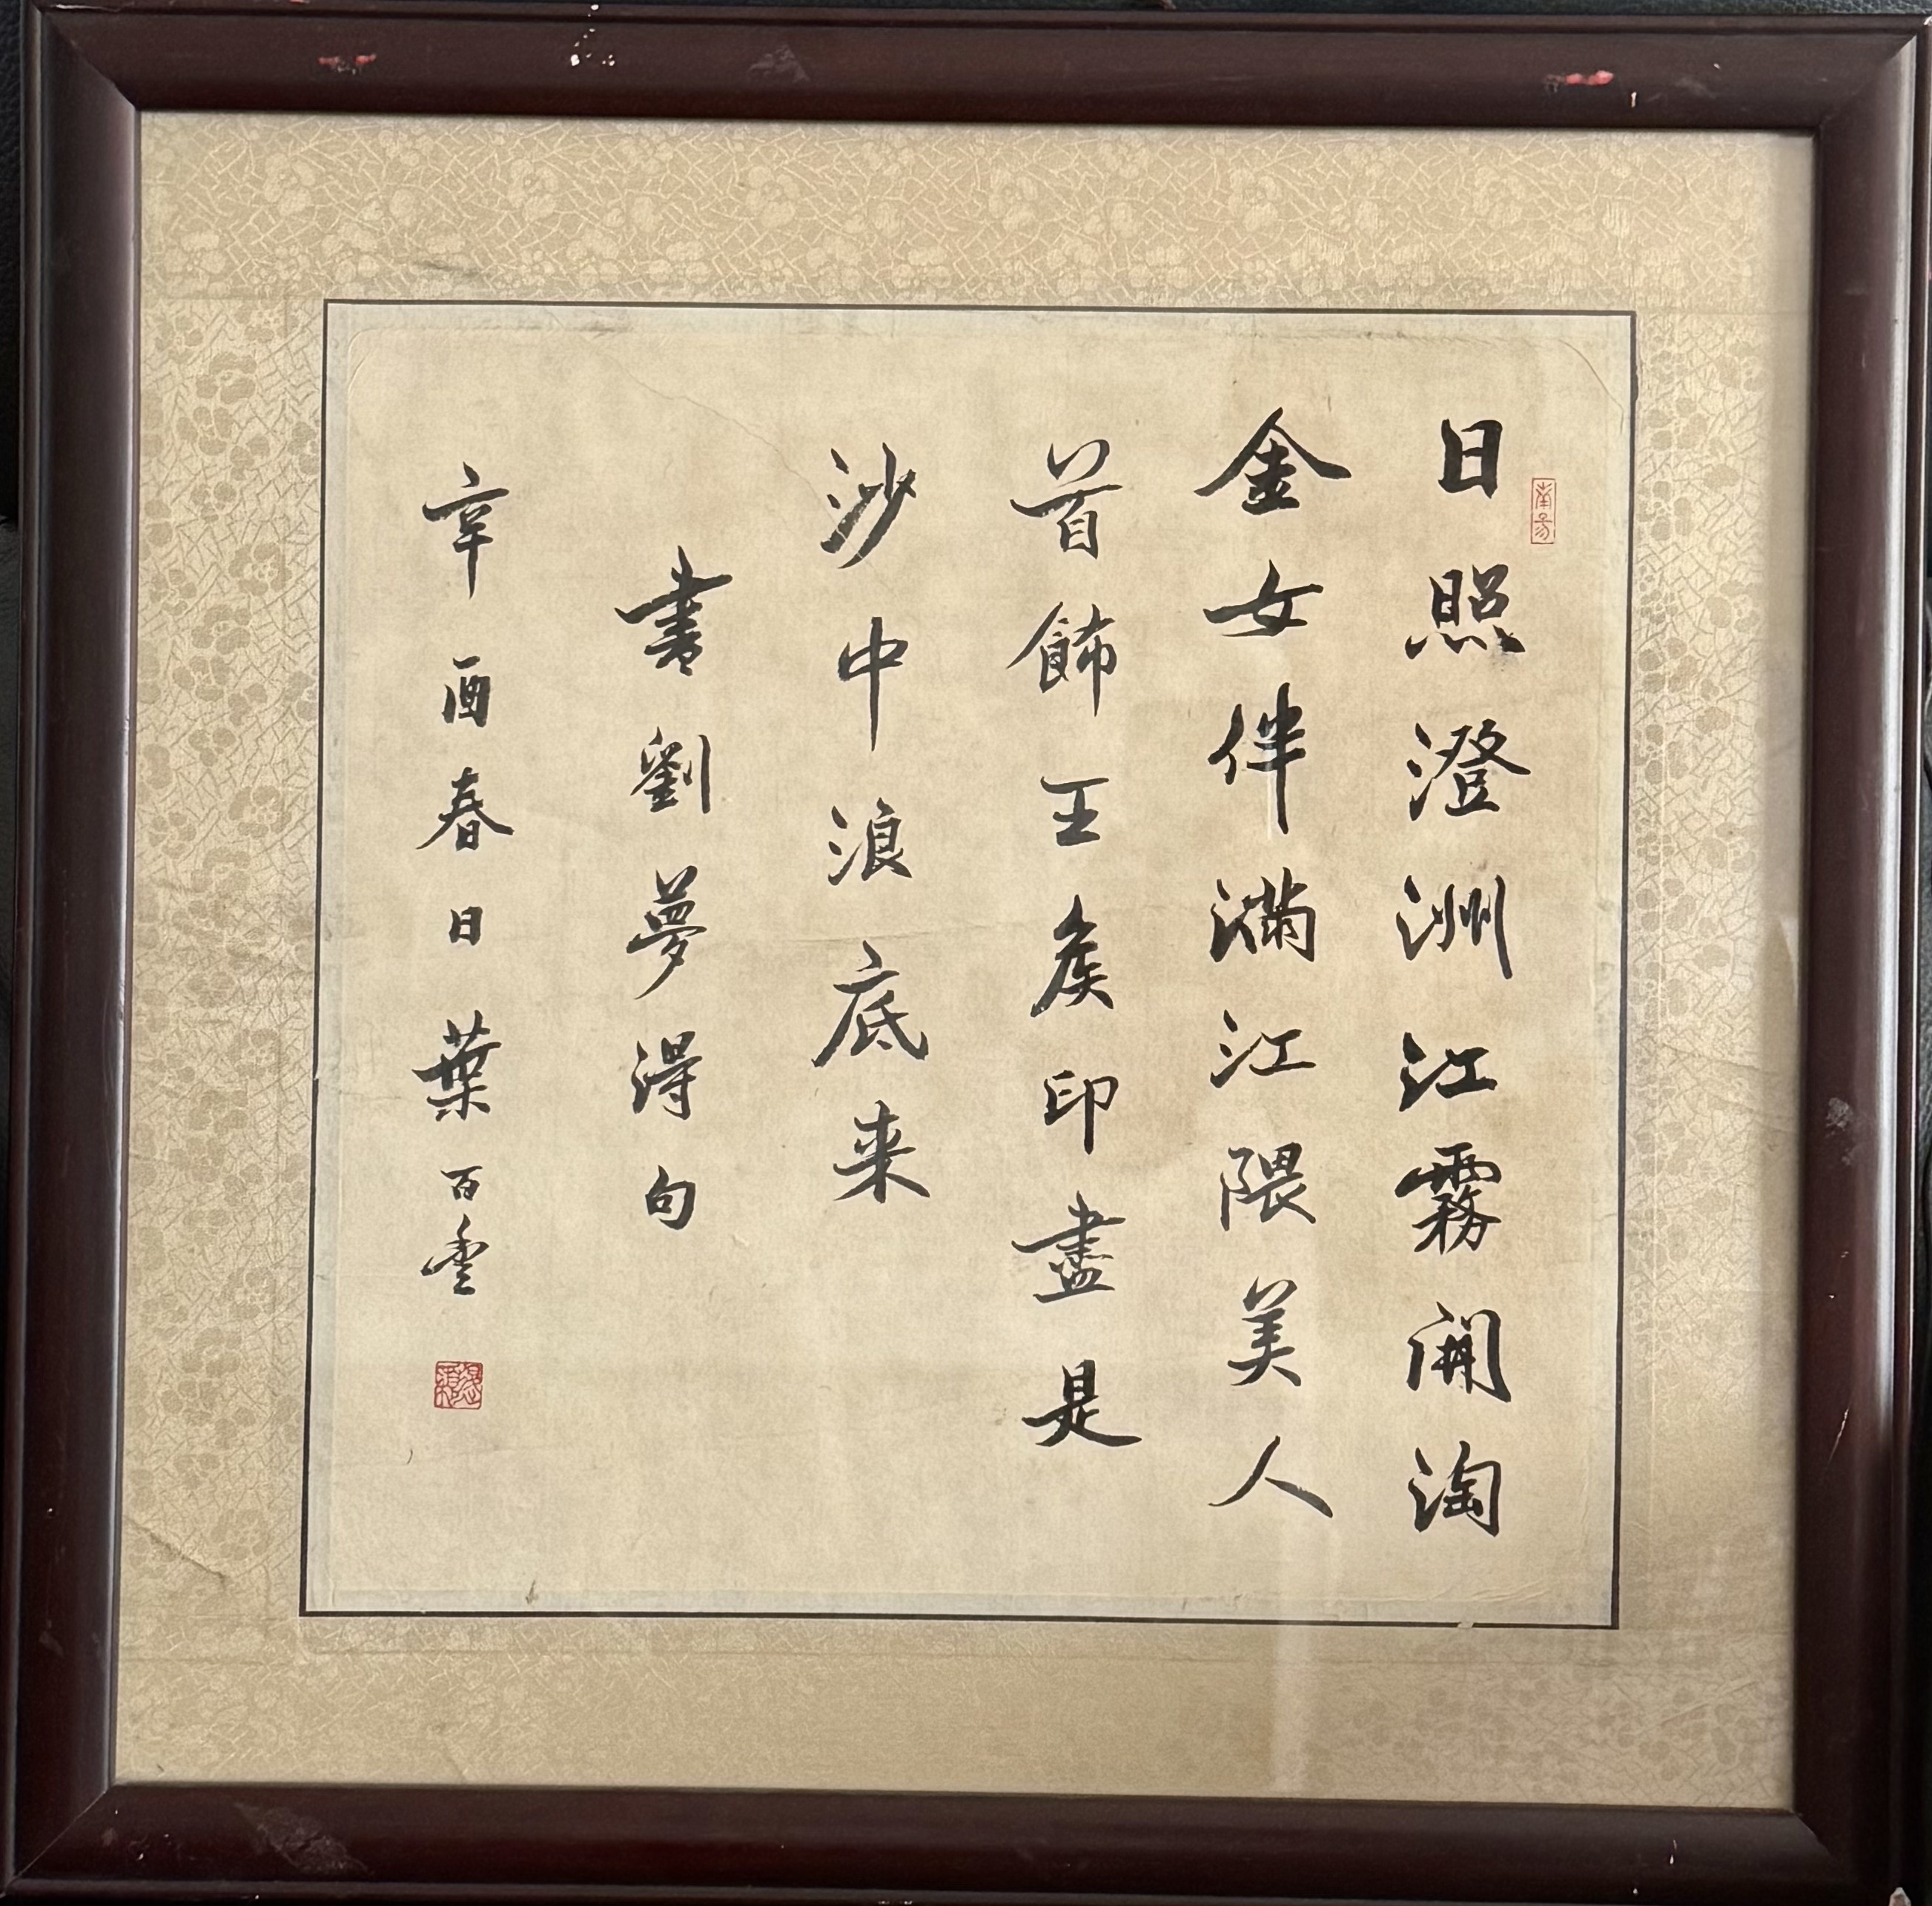 日照澄洲江霧開淘
金女伴滿江隈美人
首飾王矦印盡是
沙中浪底来
書劉夢得句
辛酉春日葉百豐